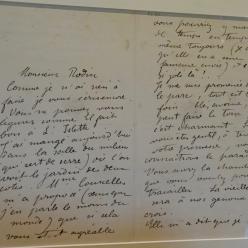 Monsieur Rodin
Comme je n'ai rien à
faire je vous écris encore
Vous ne pouvez vous
figurer comme il fait
bon à L'Islette
J'ai mangé aujourd'hui
dans la salle du milieu
(qui sert de serre) où l'on
voit le jardin de deux
côtés. Me Courcelles
m'a proposé (sans que
j'en parle le moins du
monde) que si cela
vous était agréable
vous pourriez y
de temps en temps
même toujours (
qu'elle en a une
fameuse envie)
si joli là!
Je me suis promenée dans
le parc, tout est
foin, blé, avoine,
peut faire le tour
c'est charmant. Si
êtes gentil, à
votre promesse, nous
connaîtrons le paradis
Vous aurez la chambre
que vous voulez pour
travailler. La vieille
sera à nos genoux
crois.
Elle m'a dit que je